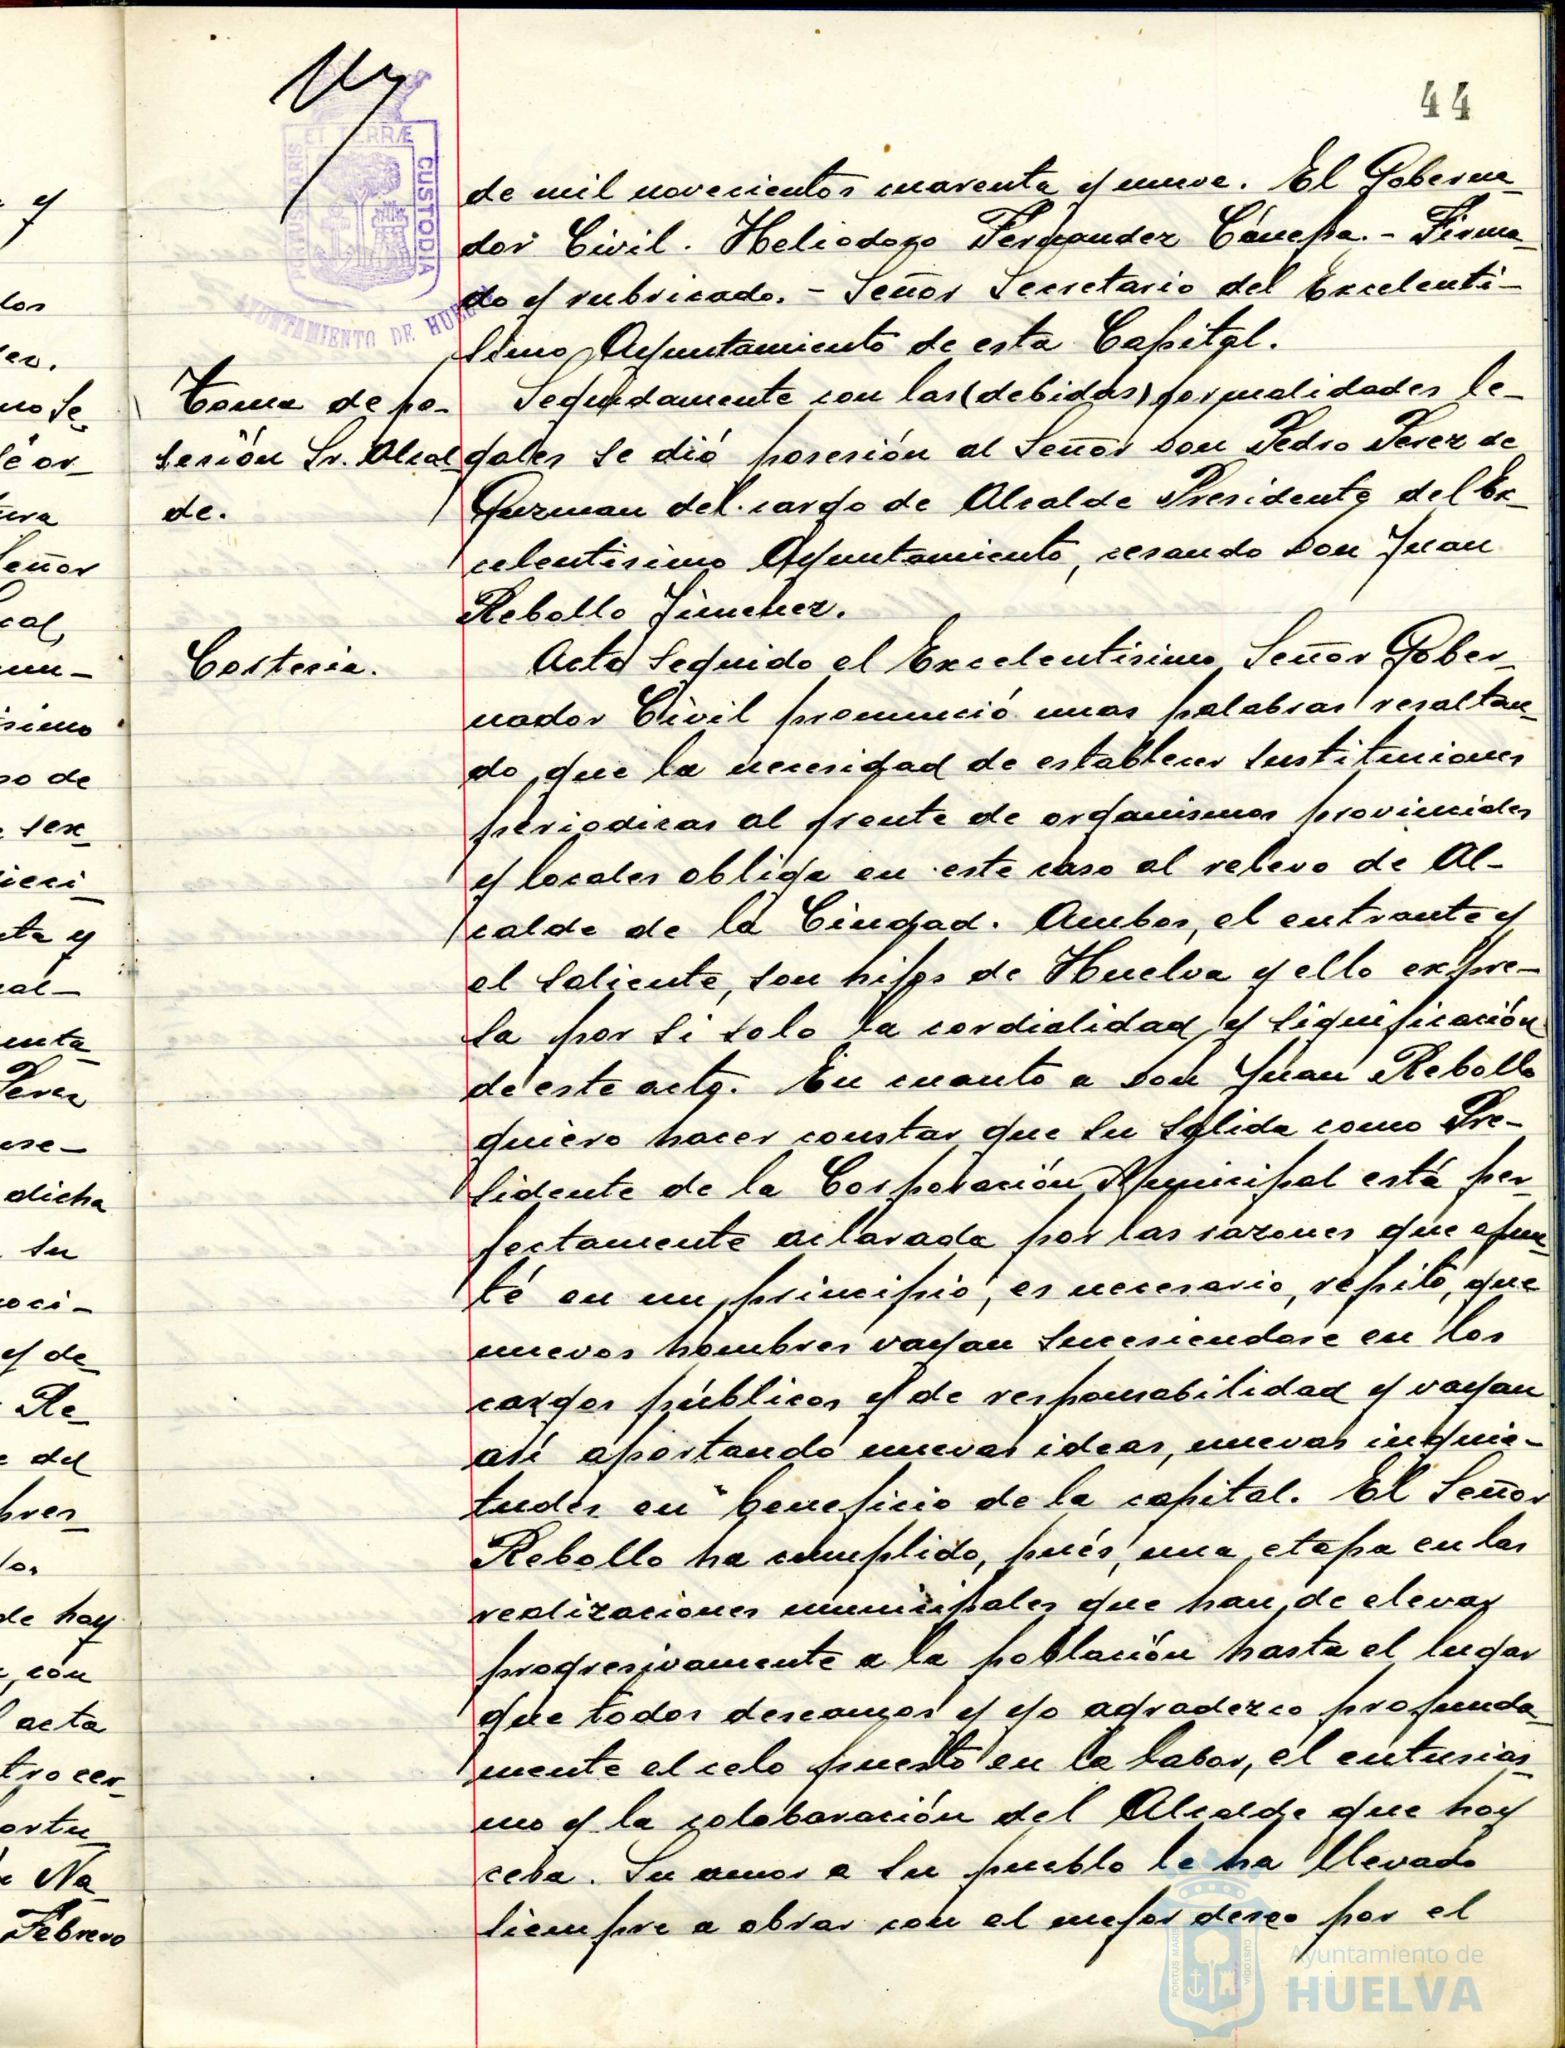 44
PORTUS MARIS ET TERRÆ CUSTODIA
AYUNTAMIENTO DE HUELVA
de mil novecientos cuarenta y nueve. El Goberna
dor Civil. Heliodoro Fernandez Cánepa. - Firma
do y rubricado. - Señor Secretario del Excelenti-
simo Ayuntamiento de esta Capital.
Toma de po-
sesión Sr. Alcal
de.
Seguidamente con las (debidas) formalidades le-
gales se dió posesión al Señor Don Pedro Perez de
Guzman del cargo de Alcalde Presidente del Ex-
celentisimo Ayuntamiento, cesando Don Juan
Rebollo Jimenez.
Cortesia.
Acto seguido el Excelentisimo Señor Gober-
nador Civil pronunció unas palabras resaltan-
do que la necesidad de establecer sustituciones
periodicas al frente de organismos provinciales
y locales obliga en este caso al relevo de Al-
calde de la Ciudad. Ambos, el entrante y
el saliente, son hijos de Huelva y ello expre-
sa por si solo la cordialidad y significación
de este acto. En cuanto a Don Juan Rebollo
quiero hacer constar que su salida como Pre-
sidente de la Corporación Municipal está per-
fectamente aclarada por las razones que apun
té en un principio, es necesario, repito, que
nuevos hombres vayan sucesiendose en los
cargos públicos y de responsabilidad y vayan
así aportando nuevas ideas, nuevas inquie-
tudes en beneficio de la capital. El Señor
Rebollo ha cumplido, pués, una etapa en las
realizaciones municipales que han de elevar
progresivamente a la población hasta el lugar
que todos deseamos y yo agradezco profunda-
mente el celo puesto en la labor, el entusias-
mo y la colabaración del Alcalde que hoy
cesa. Su amor a su pueblo le ha llevado
siempre a obrar con el mejor deseo por el
Ayuntamiento de
HUELVA